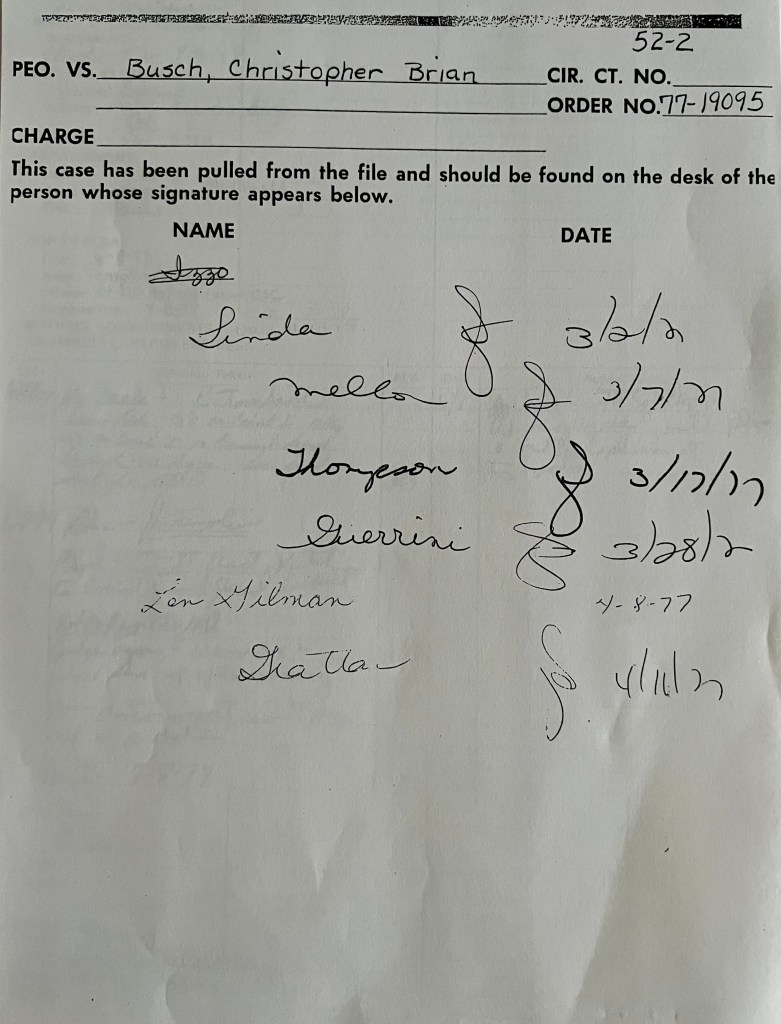 52-2
PEO. VS. Busch, Christopher Brian CIR. CT. NO.
ORDER NO. 77-19095
CHARGE
This case has been pulled from the file and should be found on the desk of the
person whose signature appears below.
NAME DATE
Izzo
Linda 3/2/77
Mello 3/7/77
Thompson 3/17/77
Guerrini 3/28/77
Len Gilman 4-8-77
4/11/77